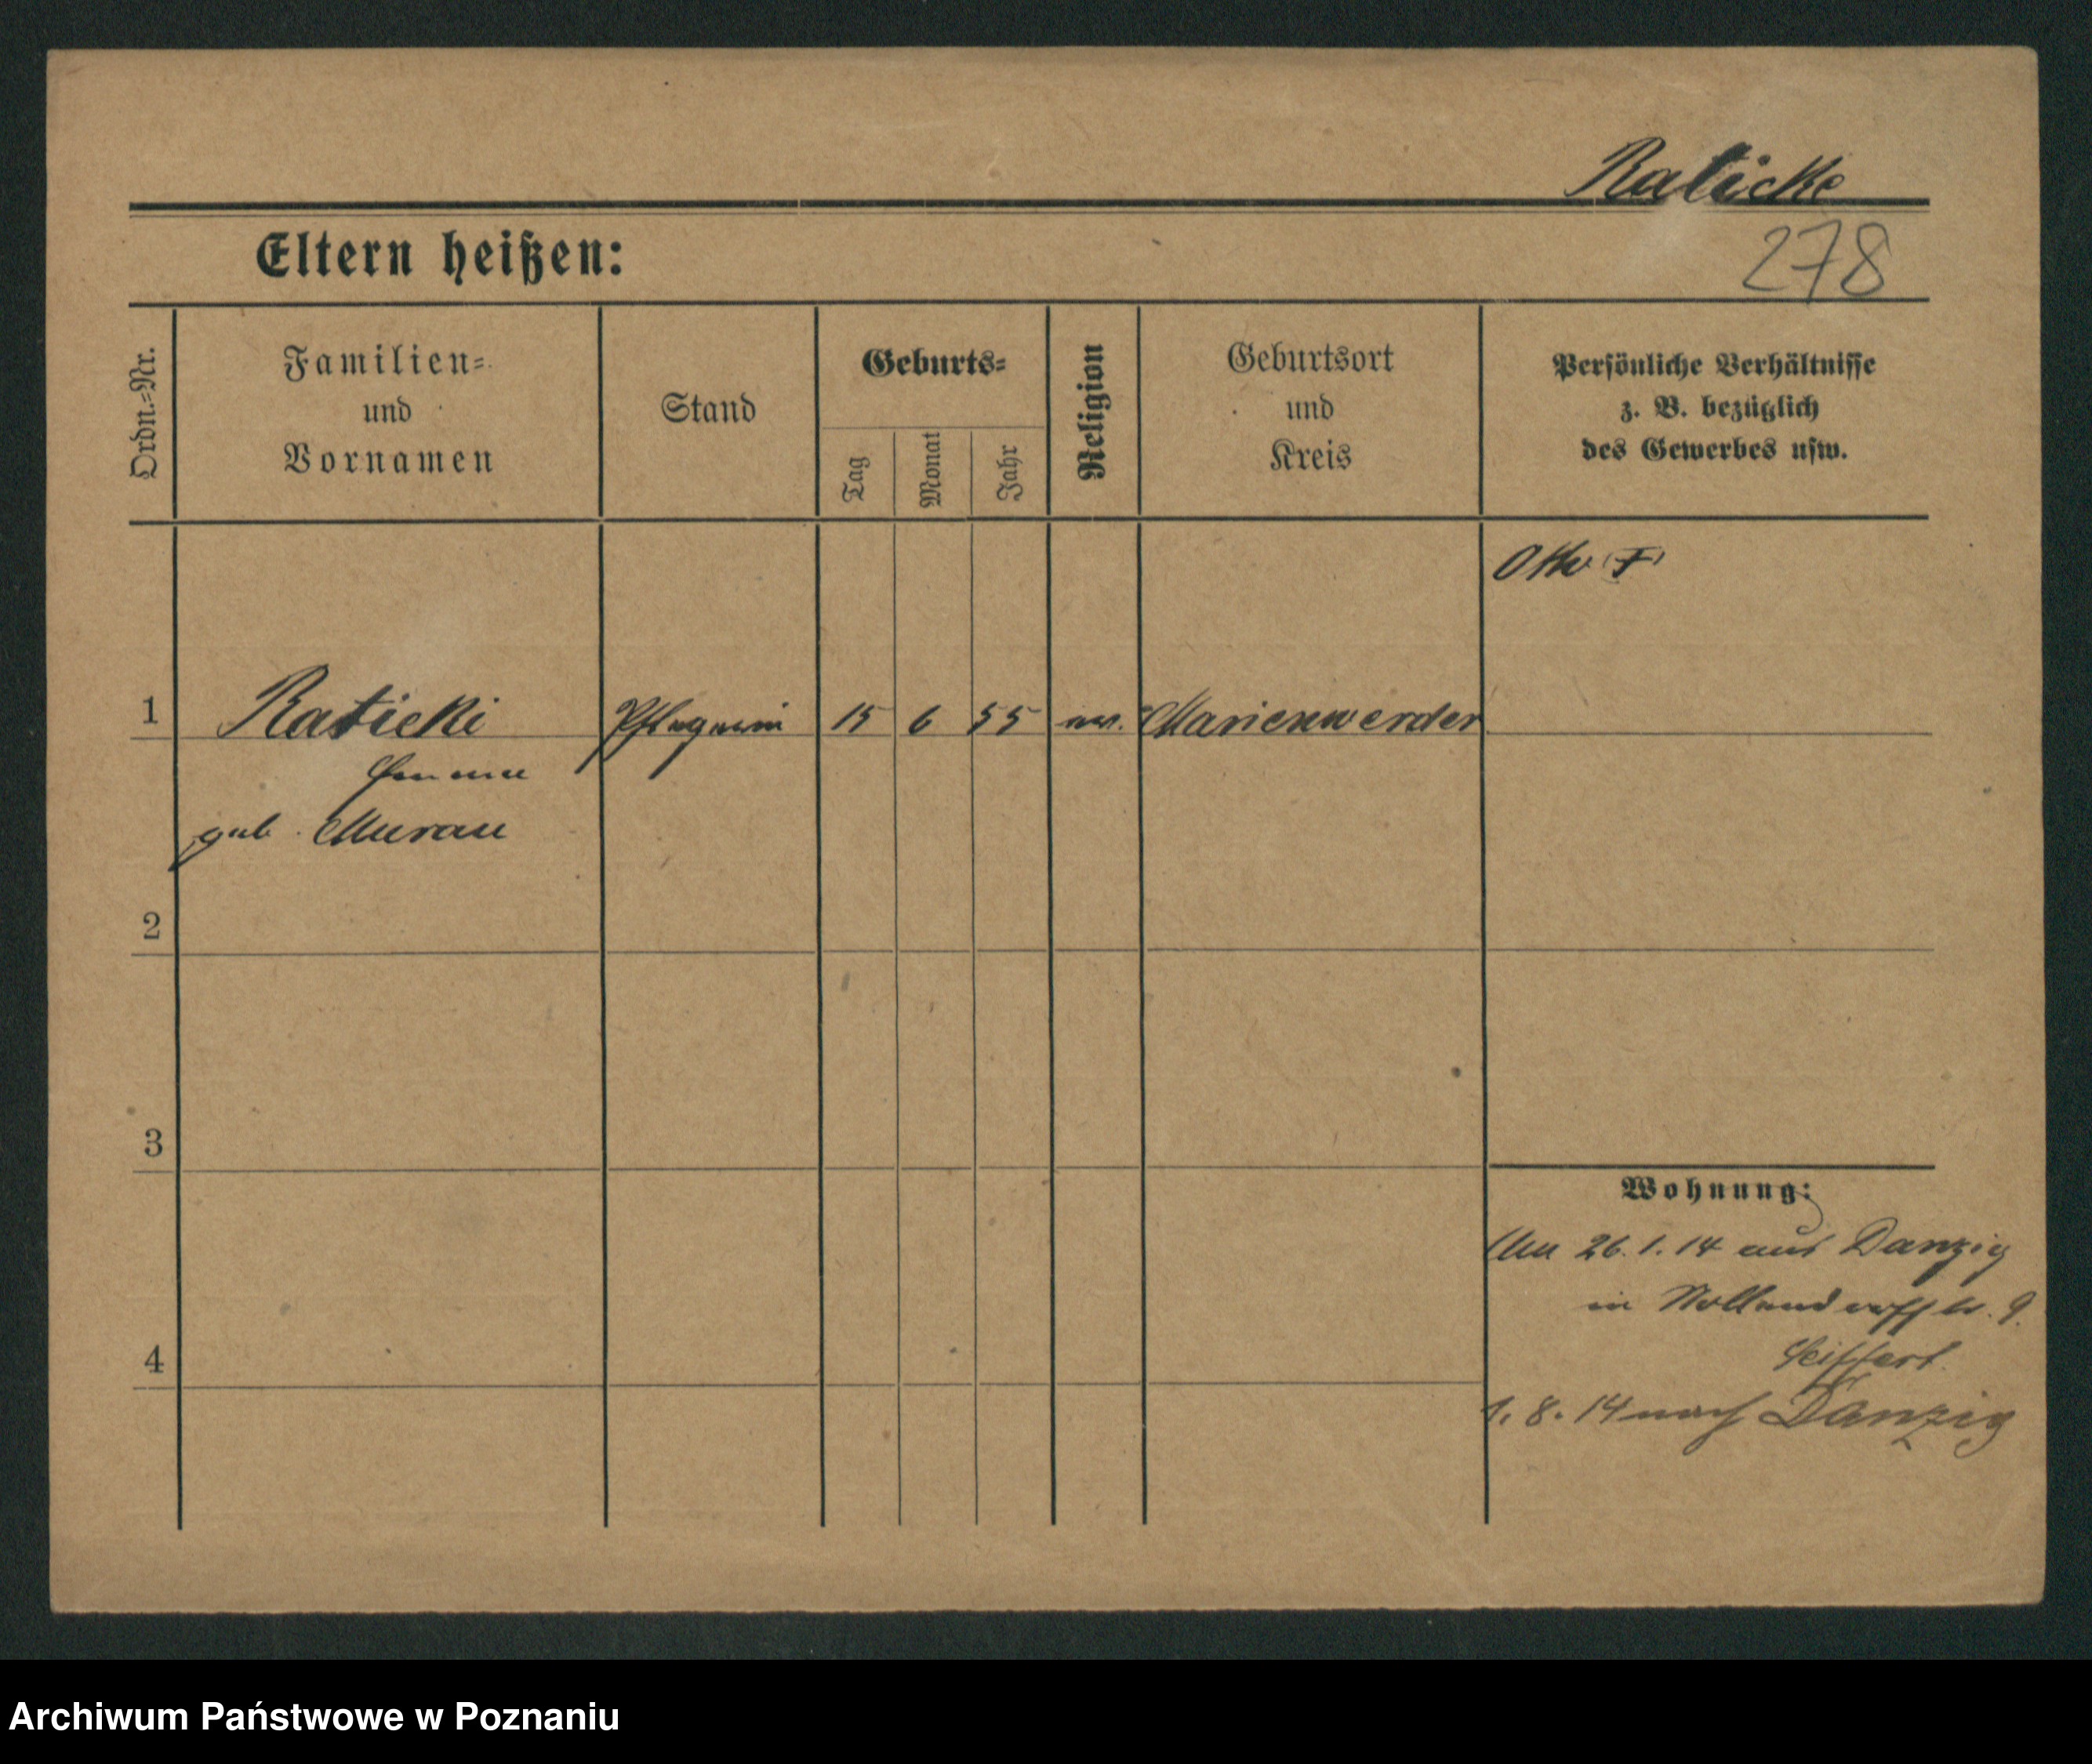 Raticke
278
Eltern heißen:
Ordn.-Nr.
Familien-
und
Vornamen
Stand
Geburts-
Tag
Monat
Jahr
Religion
Geburtsort
und
Kreis
Persönliche Verhältnisse
z. B. bezüglich
des Gewerbes usw.
Otto
1 Raticki Pflegerin 15 6 55 ev. Marienwerder
Emma
geb. Murau
2
3
Wohnung:
26.1.14 aus Danzig
in Nollendorffstr. 9.
Seiffert.
4
1.8.14 nach Danzig
Archiwum Państwowe w Poznaniu